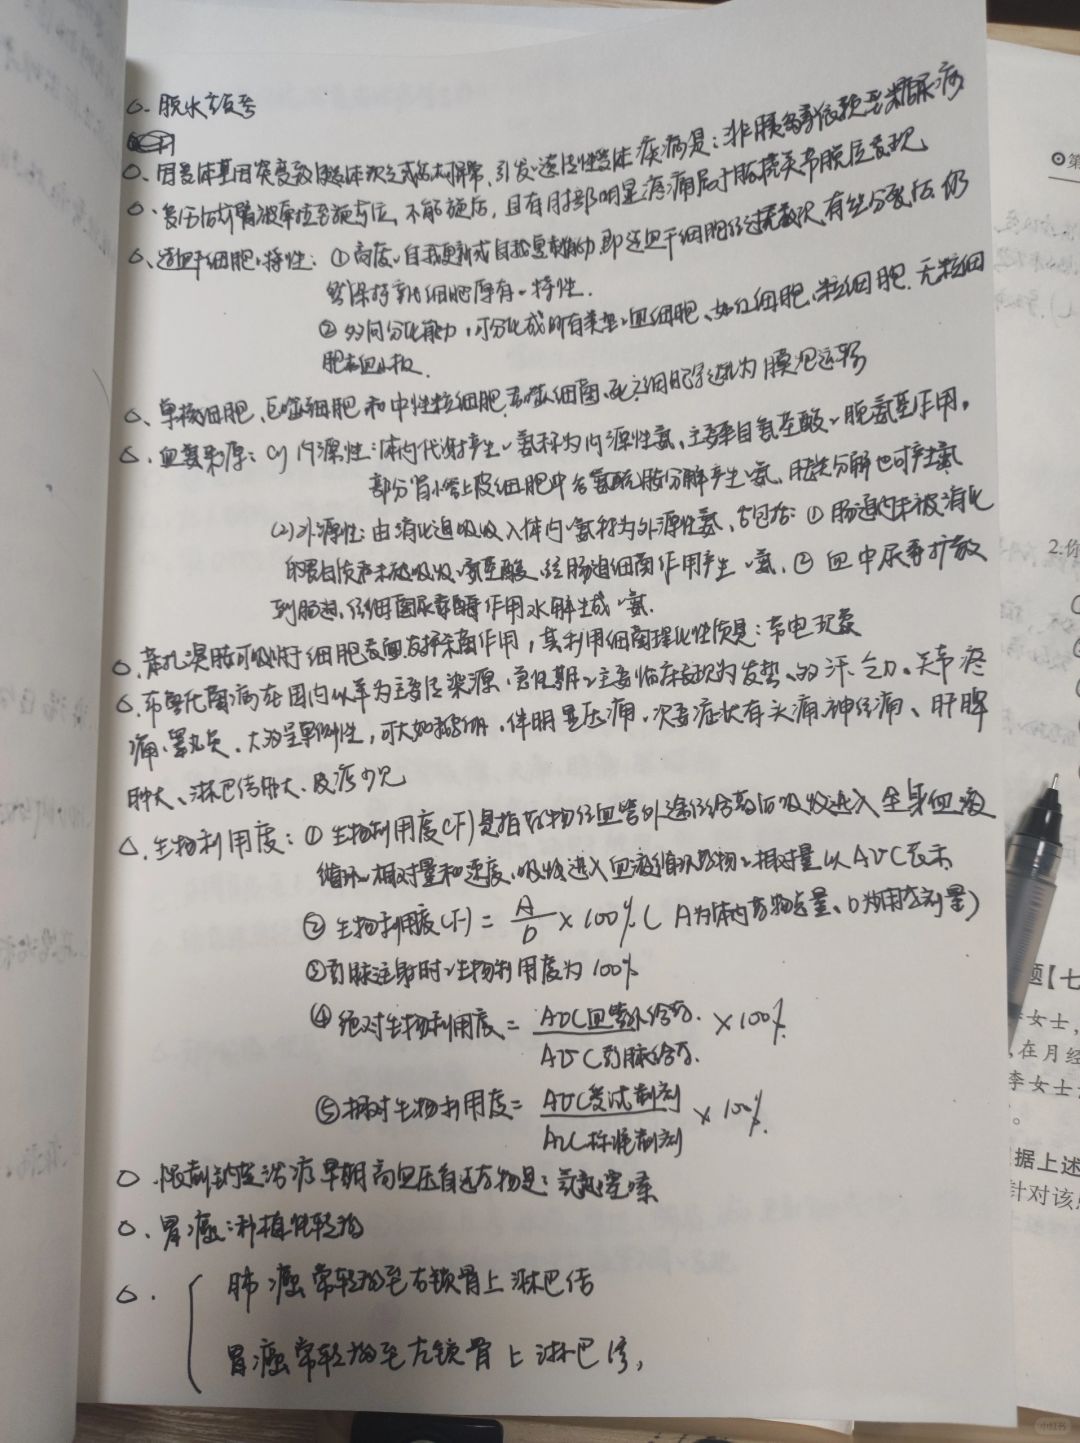 脱水
因受体基因突变致受体 异常,引发遗传性受体疾病是:非胰岛素依赖型糖尿病
不能 后,且有肘部明显疼痛 关节脱位表现
造血干细胞特性:①高度自我更新或自我复制能力,即造血干细胞经过 次有丝分裂后仍
然保持 细胞原有特性.
②多向分化能力,可分化成所有类型血细胞、如红细胞、粒细胞、无粒细
胞和血小板.
单核细胞、巨噬细胞和中性粒细胞吞噬细菌、死亡细胞 为膜泡运输
血氨来源:(1)内源性:体内代谢产生氨称为内源性氨,主要来自氨基酸脱氨基作用,
部分肾小管上皮细胞中谷氨酰胺分解产生氨、胺类分解也可产氨
(2)外源性:由消化道吸收入体内氨称为外源性氨,包括:①肠道内未被消化
的蛋白质和未被吸收氨基酸、经肠道细菌作用产生氨,②血中尿素扩散
到肠道,经细菌尿素酶作用水解生成氨.
溶胶可吸附于细胞表面发挥杀菌作用,其利用细菌理化性质是:带电现象
布鲁氏菌病在国内以羊为主要传染源.急性期主要临床表现为发热、多汗、乏力、关节疼
痛、睾丸炎、大多呈单侧性,可大如鹅卵,伴明显压痛.次要症状有头痛、神经痛、肝脾
肿大、淋巴结肿大.皮疹少见
生物利用度:①生物利用度(F)是指药物经血管外途径给药后吸收进入全身血液
循环相对量和速度.吸收进入血液循环药物相对量以AUC表示
②生物利用度(F)= A/D ×100%(A为体内药物总量、D为用药剂量)
③静脉注射时生物利用度为100%
④绝对生物利用度= AUC血管外给药/AUC静脉给药 ×100%.
⑤相对生物利用度= AUC受试制剂/AUC标准制剂 ×100%.
限制钠盐治疗早期高血压首选药物是:氢氯噻嗪
胃癌:种植性转移
肺癌常转移至右锁骨上淋巴结
胃癌常转移至左锁骨上淋巴结,
第
2.你
题【七
李女士,
在月经
李女士
据上述
针对该
小红书